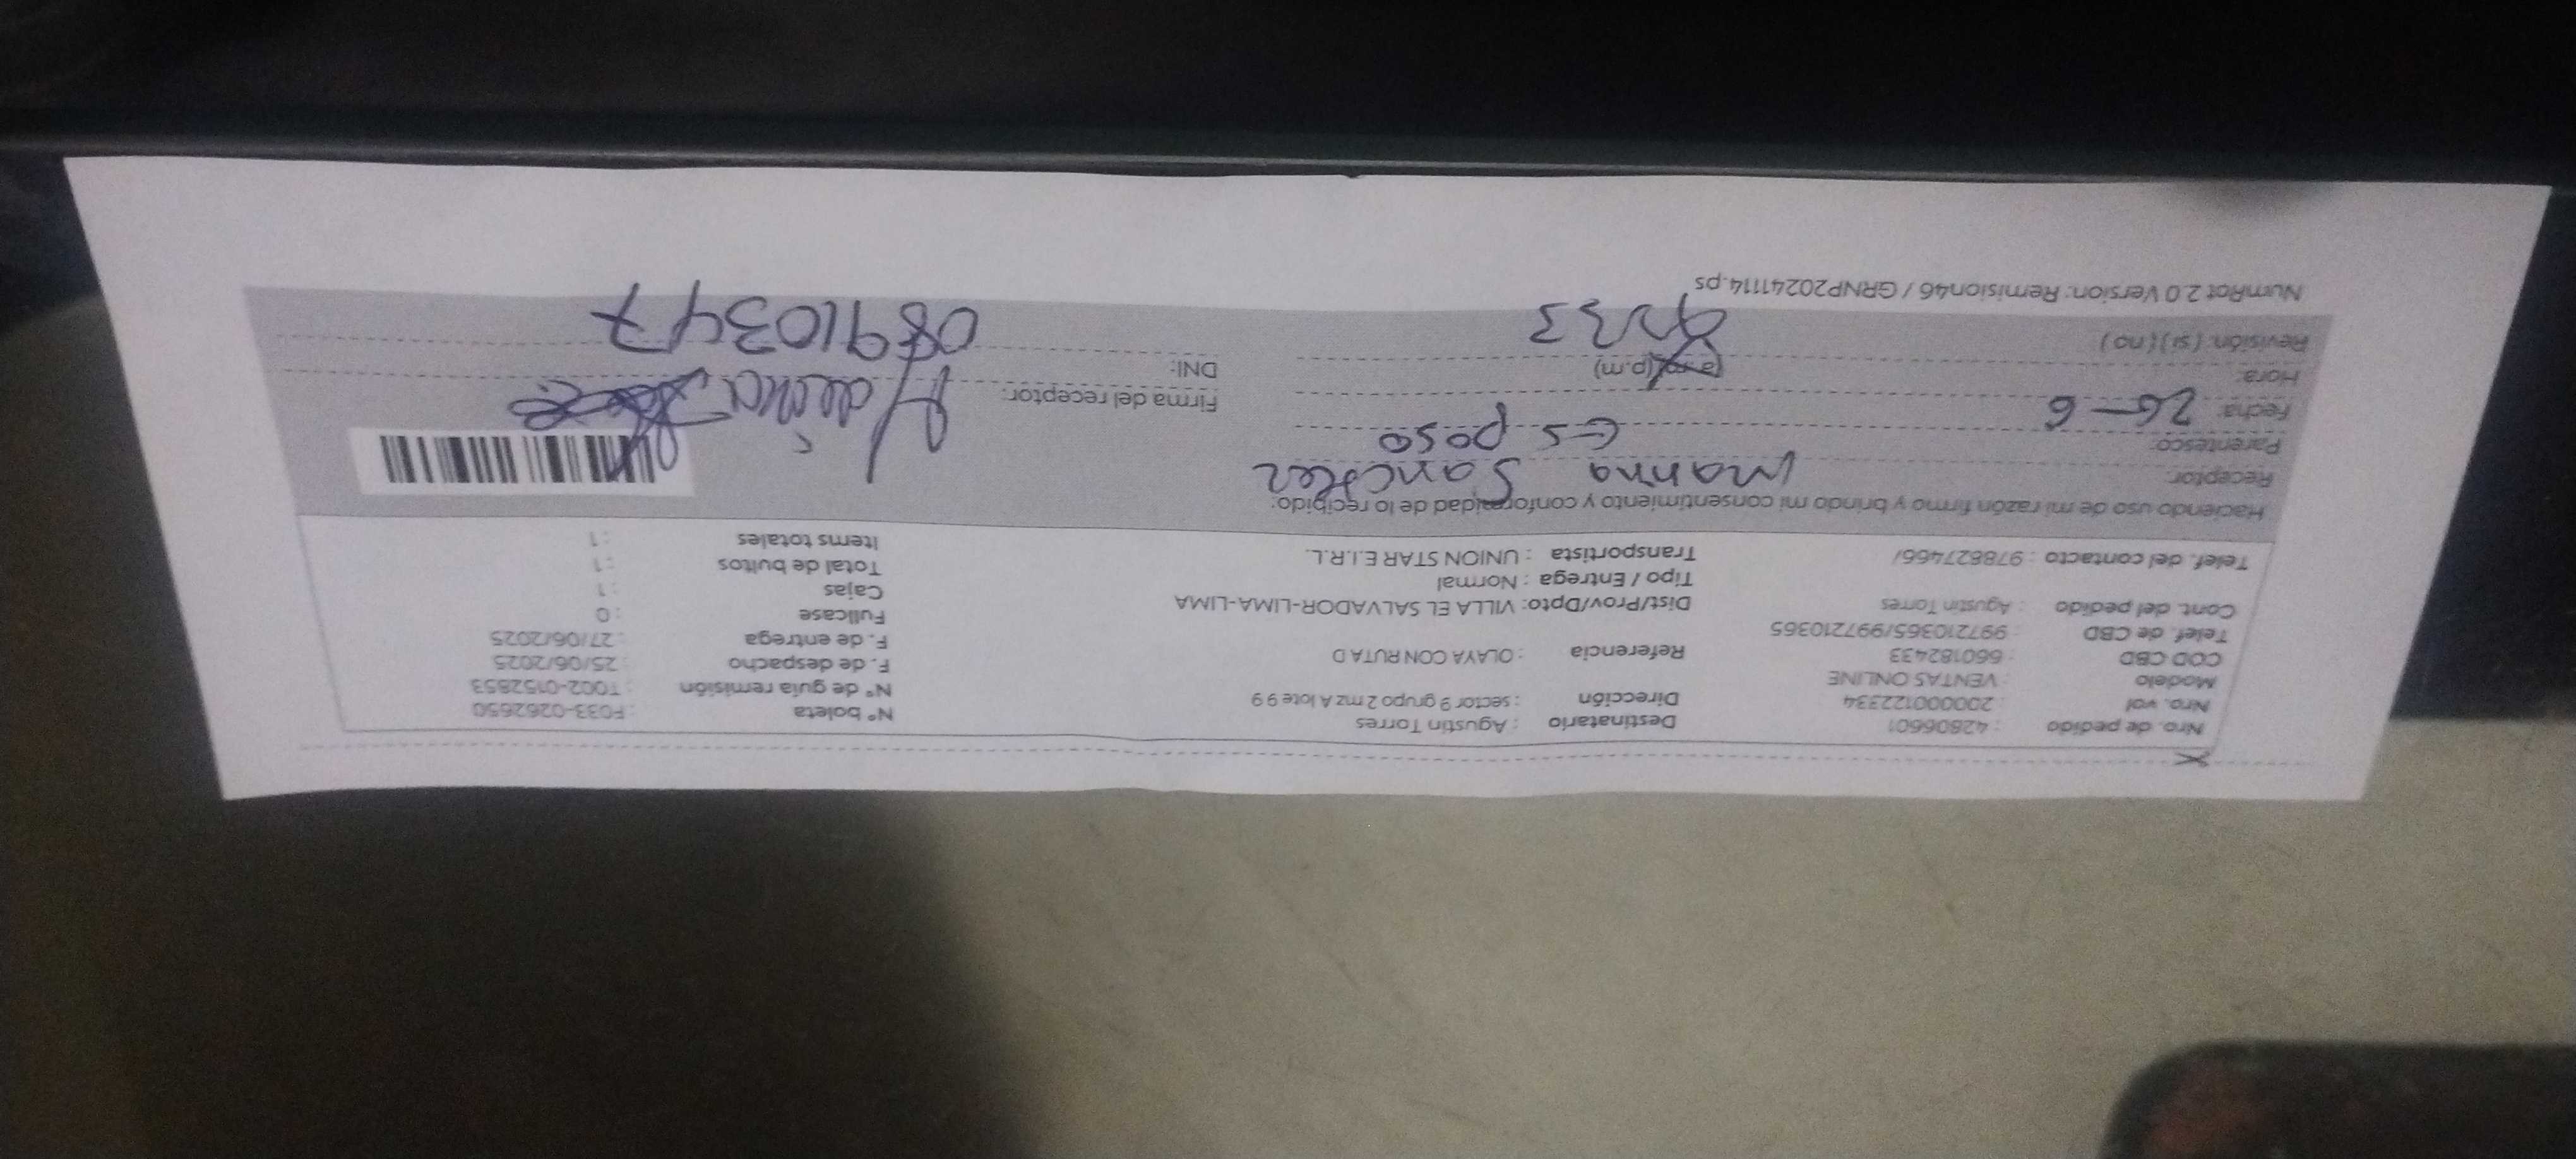 Nro. de pedido : 42806601 Destinatario : Agustin Torres N° boleta : F033-0262650
Nro. vol : 20000122334 Dirección : sector 9 grupo 2 mz A lote 9 9 N° de guía remisión : T002-0152853
Modelo : VENTAS ONLINE F. de despacho : 25/06/2025
COD CBD : 660182433 Referencia : OLAYA CON RUTA D F. de entrega : 27/06/2025
Telef. de CBD : 997210365/997210365 Fullcase : 0
Cont. del pedido : Agustin Torres Dist/Prov/Dpto: VILLA EL SALVADOR-LIMA-LIMA Cajas : 1
Tipo / Entrega : Normal Total de bultos : 1
Telef. del contacto : 978827466/ Transportista : UNION STAR E.I.R.L. Items totales : 1
Haciendo uso de mi razón firmo y brindo mi consentimiento y conformidad de lo recibido:
Receptor: Marina Sanchez
Parentesco: Es poso
Fecha: 26-6 Firma del receptor:
Hora: (a.m)(p.m) DNI: 08910347
Revisión: ( si ) ( no )
NumRot 2.0 Version: Remision46 / GRNP20241114.ps